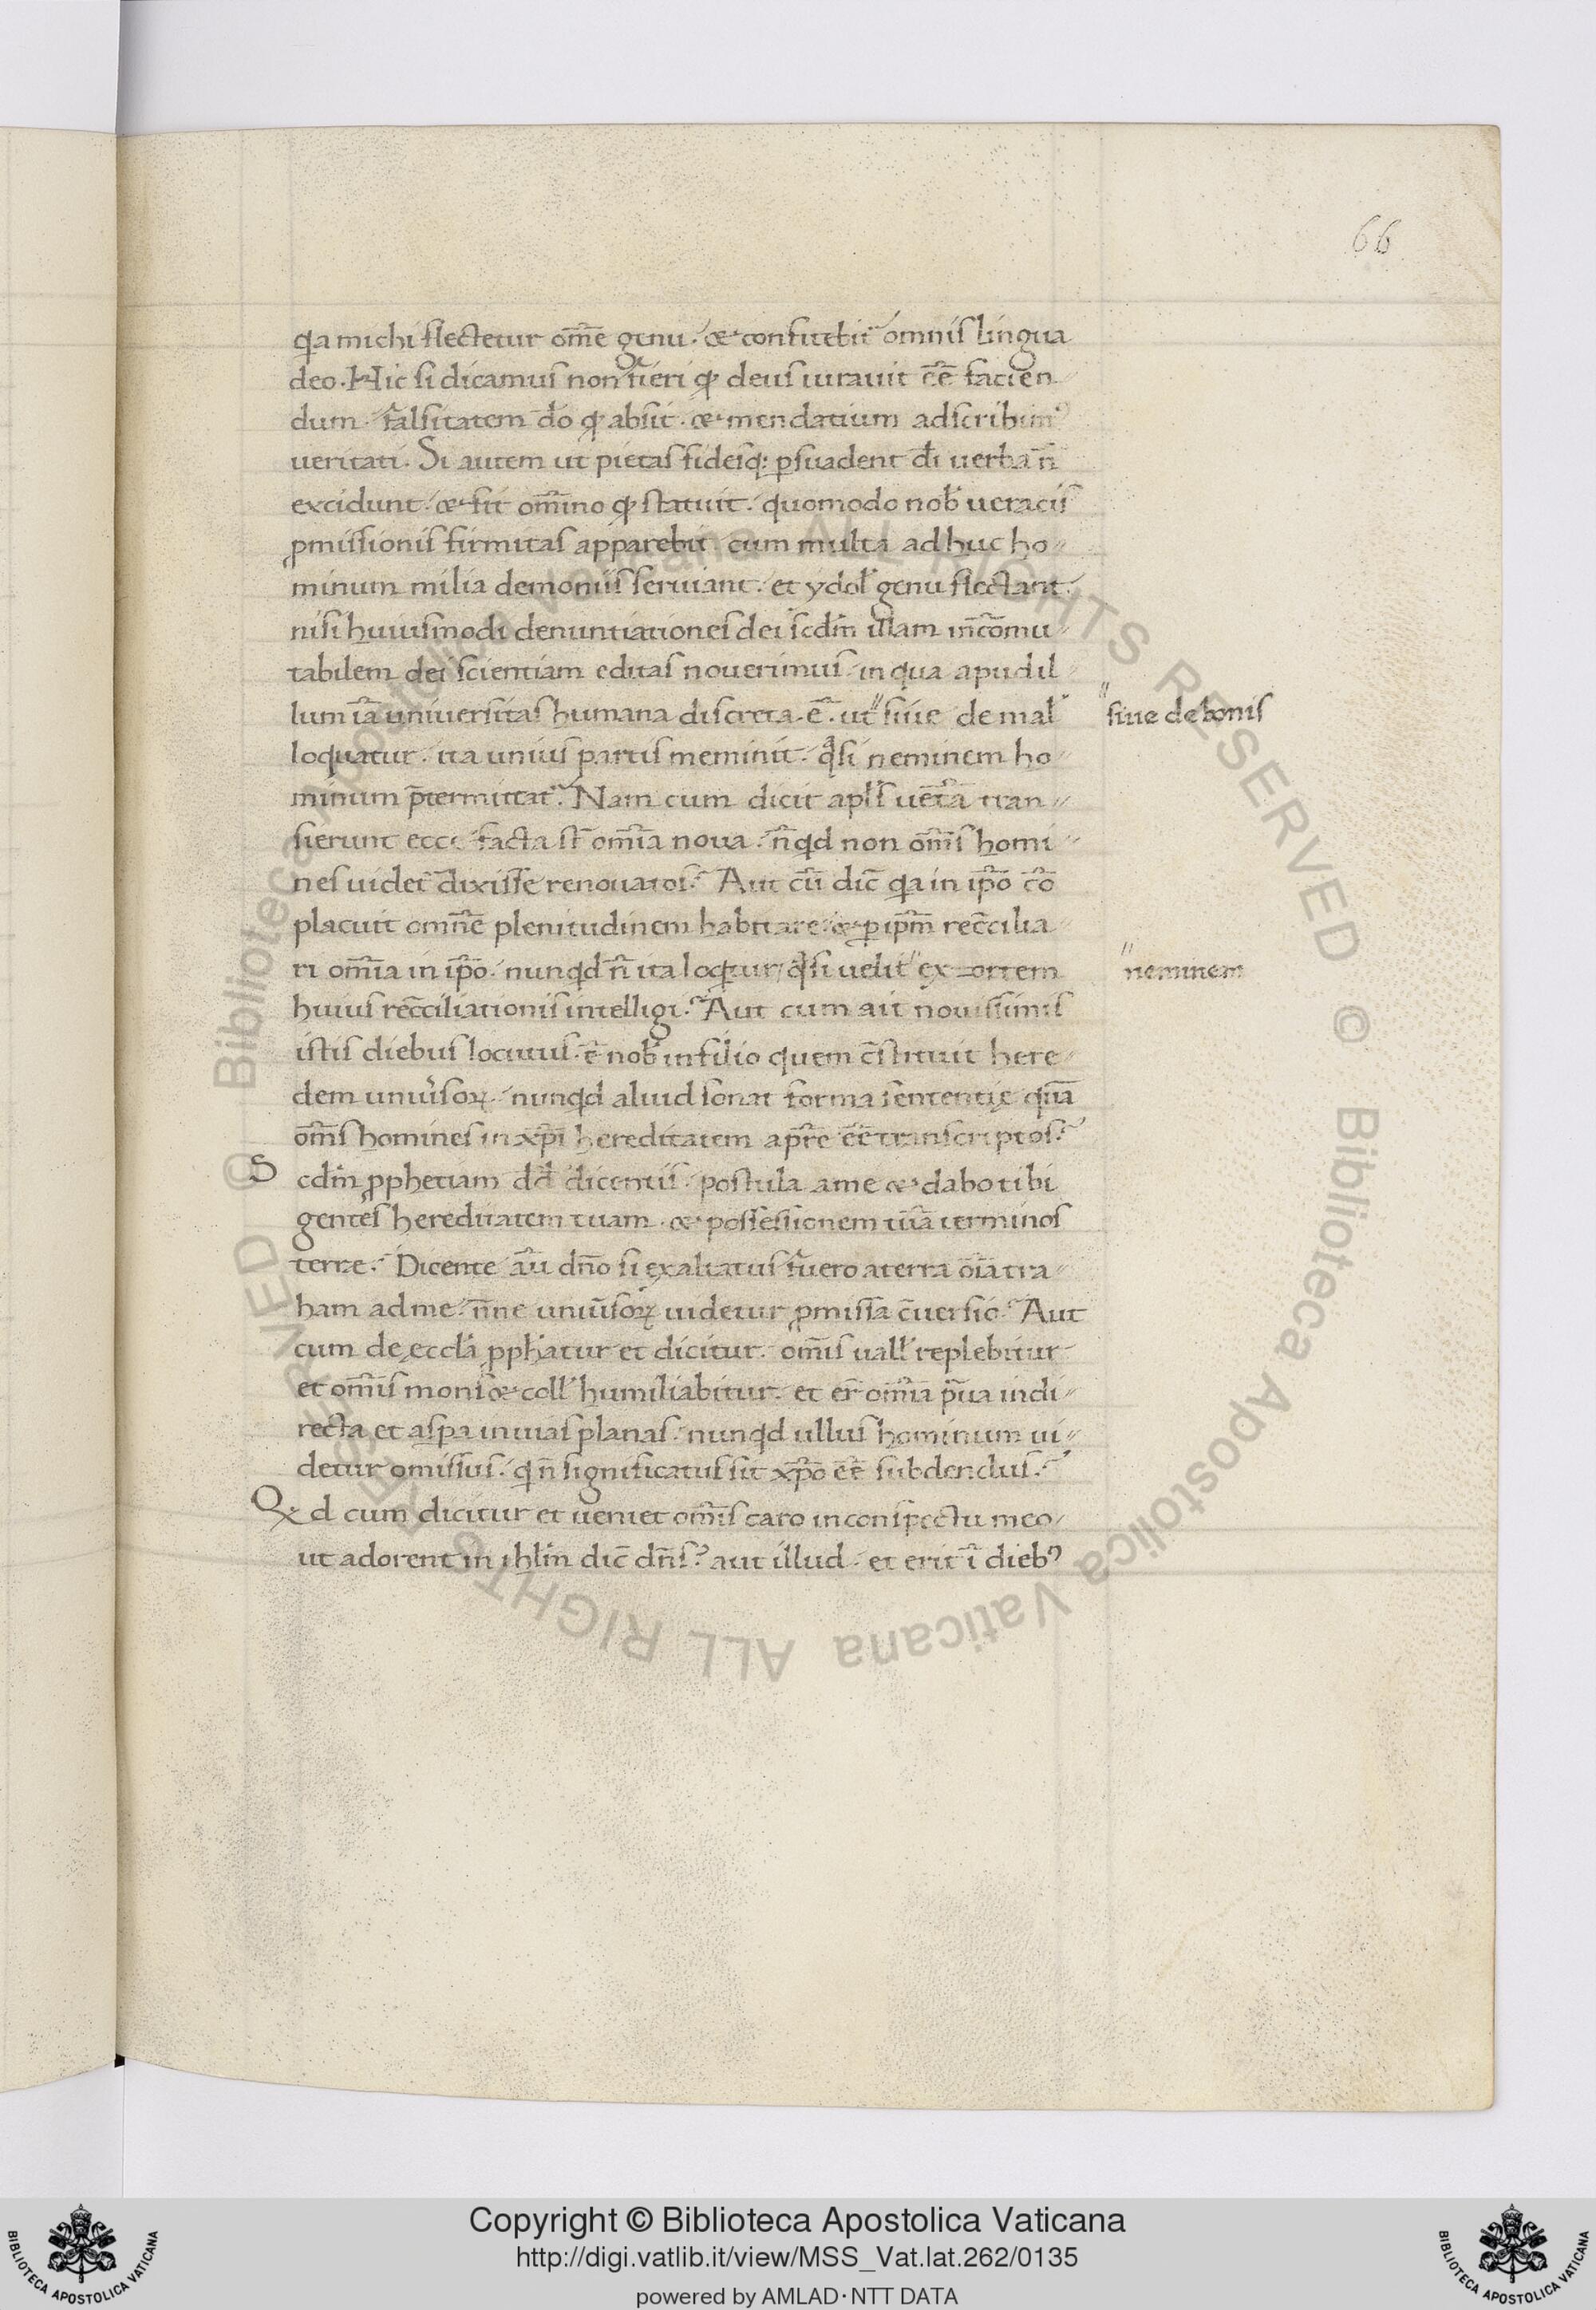 66
qa michi flectetur om̄e genu. & confitebit᷑ omnis lingua
deo. Hic si dicamus non fieri qđ deus iurauit eē̄ facien〃
dum. falsitatem dō qđ absit. & mendatium adscribim᷒
ueritati. Si autem ut pietas fidesq; ꝑsuadent dī uerba n̄
excidunt. & fit om̄ino qđ statuit. quomodo nob̄ ueracis
ꝓmissionis firmitas apparebit cum multa adhuc ho〃
minum milia demoniis seruiant. et ydol̄ genu flectant.
nisi huiusmodi denuntiationes dei scdm̄ illam incōmu〃
tabilem dei scientiam editas nouerimus. in qua apud il〃
lum iā uniuersitas humana discreta. ē. ut〃 siue de mal̄
〃 siue de bonis
loquatur. ita unius partis meminit. qᵃsi neminem ho〃
minum p̄termittat. Nam cum dicit apl̄s uet̄a tran〃
sierunt ecce facta st̄ om̄ia noua. n̄qd non om̄s homi〃
nes uidet᷑ dixisse renouatos? Aut cū dic̄ qa in ip̄o cō
placuit omnē plenitudinem habitare. & ꝑ ip̄m rec̄cilia〃
ri om̄ia in ip̄o. nunqd n̄ ita loqtur qᵃsi uelit〃 exsortem
〃 neminem
huius rec̄ciliationis intelligi? Aut cum ait nouissimis
istis diebus locutus. ē nob̄ in filio quem c̄stituit here〃
dem uniūsoꝝ. nunqd aliud sonat forma sententię quā
om̄s homines in xp̄i hereditatem a pr̄e eē̄ transcriptos?
Scdm̄ ꝓphetiam dd̄ dicentis. postula a me & dabo tibi
gentes hereditatem tuam. & possessionem tuā terminos
terre. Dicente aū dn̄o si exaltatus fuero a terra oīa tra〃
ham ad me. n̄ne uniūsoꝝ uidetur ꝓmissa c̄uersio? Aut
cum de eccl̄a ꝓphatur et dicitur. om̄is uall̄ replebitur
et om̄is mons & coll̄ humiliabitur. et er̄ om̄ia p̄ua in di〃
recta et asꝑa in uias planas. nunqd ullus hominum ui〃
detur omissus. q n̄ significatus sit xp̄o eē̄ subdendus?
Qd cum dicitur et ueniet om̄is caro in conspectu meo
ut adorent in ihl̄m dic̄ dn̄s? aut illud. et erit ī dieb᷒
Copyright © Biblioteca Apostolica Vaticana
http://digi.vatlib.it/view/MSS_Vat.lat.262/0135
powered by AMLAD·NTT DATA